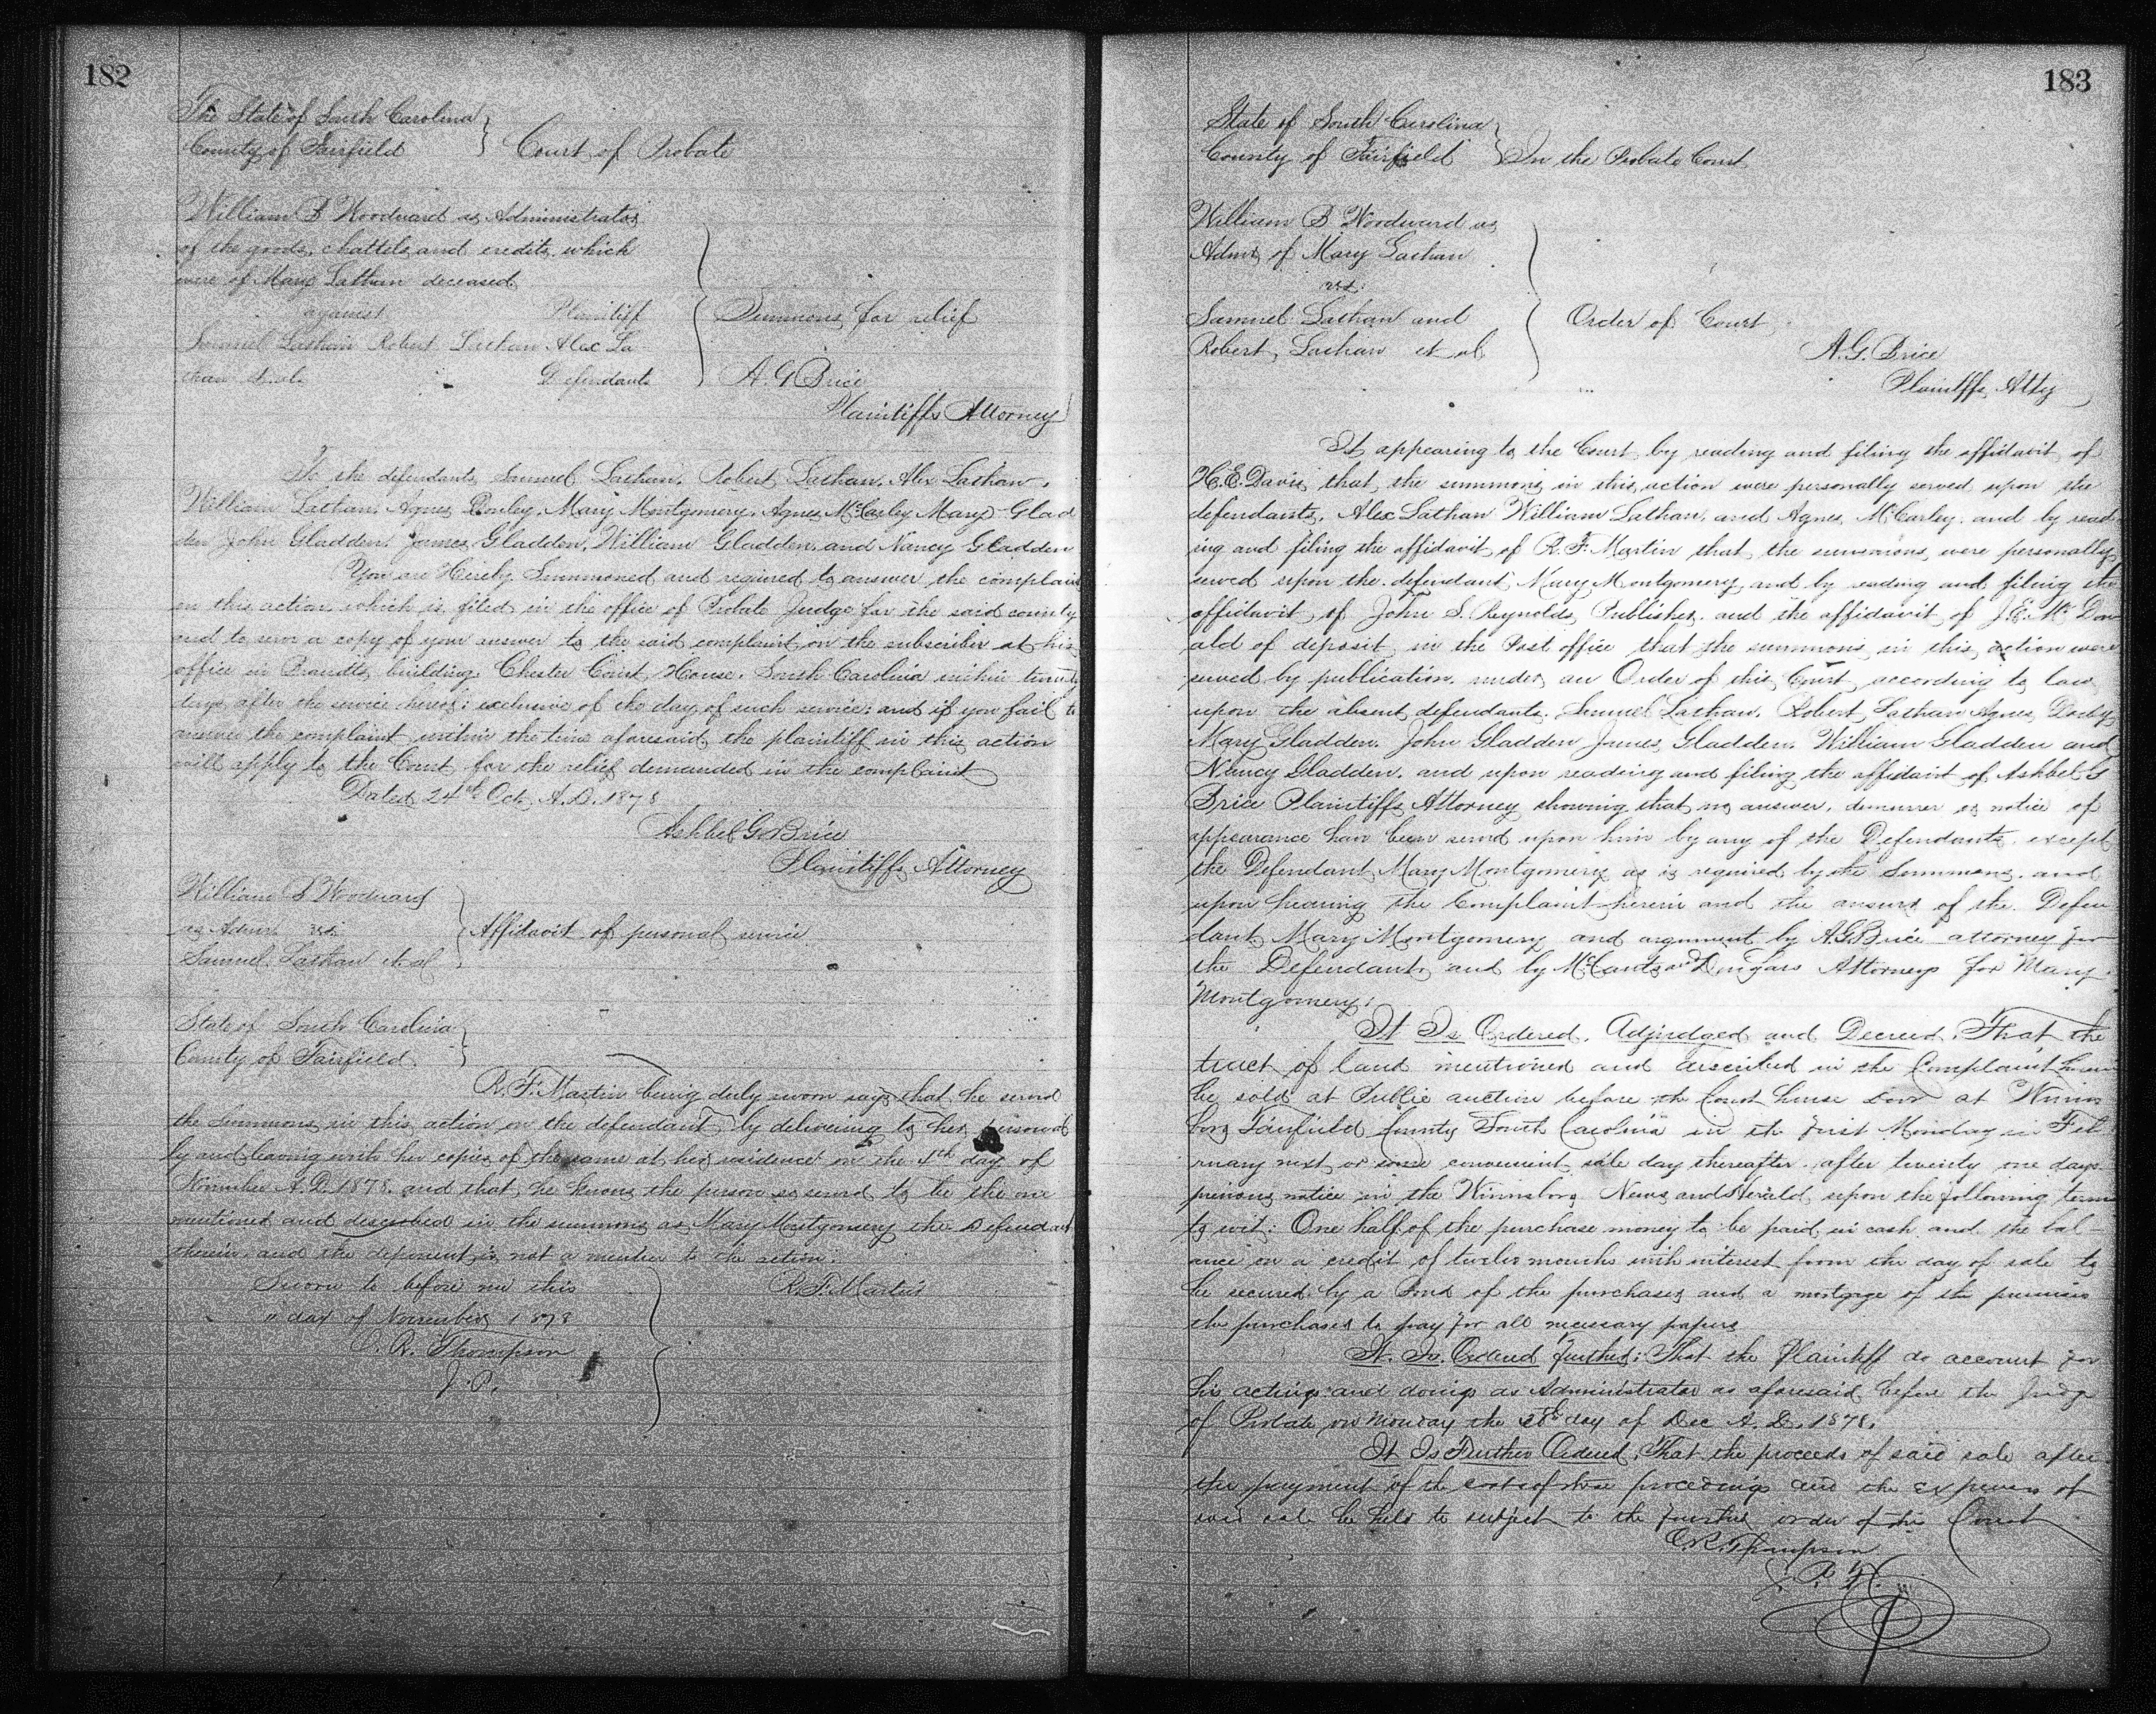 182
The State of South Carolina
County of Fairfield } Court of Probate
William B Woodward as Administrator
of the goods, chattels and credits which
were of Mary Lathan deceased
against Plaintiff } Summons for relief
Samuel Lathan Robert Lathan Alex La
than et al. Defendants } A. G Brice
Plaintiffs Attorney
To the defendants Samuel Lathan, Robert Lathan, Alex Lathan,
William Lathan, Agnes Mary Montgomery, Agnes McCarley Mary Glad
den John Gladden, James Gladden, William Gladden and Nancy Gladden
You are Hereby Summoned and required to answer the complaint
in this action which is filed in the office of Probate Judge for the said county
and to serve a copy of your answer to the said complaint on the subscriber at his
office in Brandts building, Chester Court House, South Carolina within twenty
days after the service hereof; exclusive of the day of such service; and if you fail to
answer the complaint within the time aforesaid, the plaintiff in this action
will apply to the Court for the relief demanded in the complaint
Dated 24th Oct, A.D. 1878
Ashbel G. Brice
Plaintiffs Attorney
William B Woodward
as Admr vs. } Affidavit of personal service
Samuel Lathan et al
State of South Carolina
County of Fairfield }
R. F. Martin being duly sworn says that he served
the Summons in this action on the defendant by delivering to her personal
ly and leaving with her copies of the same at her residence on the 4th day of
November A.D. 1878. and that he knows the person so served to be the one
mentioned and described in the summons as Mary Montgomery the Defendant
therein, and the deponent is not a member to the action.
Sworn to before me this R. F. Martin
" day of November 1878
O. R. Thompson
J. P.
183
State of South Carolina
County of Fairfield } In the Probate Court
William B Woodward as
Admr of Mary Lathan
vs.
Samuel Lathan and } Order of Court
Robert Lathan et al A. G. Brice
Plaintffs Atty
It appearing to the Court by reading and filing the affidavit of
H. E. Davis that the summons in this action were personally served upon the
defendants, Alex Lathan William Lathan, and Agnes McCarley, and by read
ing and filing the affidavit of R. F. Martin that the summons were personally
served upon the defendant Mary Montgomery and by reading and filing the
affidavit of John S. Reynolds Publisher and the affidavit of J. E. McDon
ald of deposit in the Post office that the summons in this action were
served by publication under an Order of this Court according to law
upon the absent defendants, Samuel Lathan, Robert Lathan Agnes
Mary Gladden, John Gladden James Gladden, William Gladden and
Nancy Gladden, and upon reading and filing the affidavit of Ashbel G
Brice Plaintiffs Attorney showing that no answer, demurrer or notice of
appearance have been served upon him by any of the Defendants except
the Defendant Mary Montgomery as is required by the Summons, and
upon hearing the Complaint herein and the answer of the Defen
dant Mary Montgomery and argument by A. G. Brice attorney for
the Defendants and by and Attorneys for Mary
Montgomery;
It Is Ordered, Adjudged and Decreed, That the
tract of land mentioned and described in the Complaint herein
be sold at Public auction before the Court house door at Winns
boro Fairfield County South Carolina on the first Monday in Feb
ruary next or some convenient sale day thereafter, after twenty one days
previous notice in the Winnsboro News and Herald upon the following terms
to wit: One half of the purchase money to be paid in cash and the bal
ance on a credit of twelve months with interest from the day of sale to
be secured by a bond of the purchaser and a mortgage of the premises
the purchaser to pay for all necessary papers
It Is Ordered further; That the Plaintiff do account for
his actings and doings as Administrator as aforesaid before the Judge
of Probate on Monday the day of Dec A. D. 1878.
It Is Further Ordered, That the proceeds of said sale after
the payment of the costs of these proceedings and the expenses of
said sale be held to subject to the further order of the Court
O. R. Thompson
J. P. F. C.